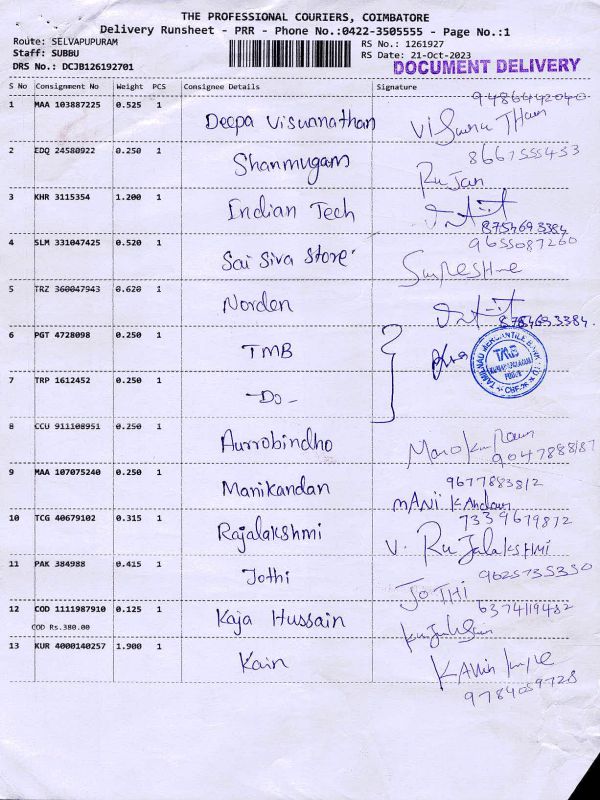 THE PROFESSIONAL COURIERS, COIMBATORE
Delivery Runsheet - PRR - Phone No.:0422-3505555 - Page No.:1
Route: SELVAPUPURAM
RS No.: 1261927
Staff: SUBBU
RS Date: 21-Oct-2023
DRS No.: DCJB126192701
DOCUMENT DELIVERY
S No Consignment No Weight PCS Consignee Details Signature
9486442040
1 MAA 103887225 0.525 1 Deepa Viswanathan
2 EDQ 24580922 0.250 1 Shanmugam
Rujan
3 KHR 3115354 1.200 1 Indian Tech
8754693384
4 SLM 331047425 0.520 1 Sai Siva Store
9655087260
5 TRZ 360047943 0.620 1 Norden
8754693384.
6 PGT 4728098 0.250 1 TMB
TAMILNAD MERCANTILE BANK LTD
TMB
7 TRP 1612452 0.250 1 -Do-
8 CCU 911108951 0.250 1 Aurrobindho
9 MAA 107075240 0.250 1 Manikandan
9677883812
10 TCG 40679102 0.315 1 Rajalakshmi
7339679872
V. RuJalakshmi
11 PAK 384988 0.415 1 Jothi
9625735330
JOTHI
12 COD 1111987910 0.125 1 Kaja Hussain
COD Rs.380.00
13 KUR 4000140257 1.900 1 Kain
9784059728